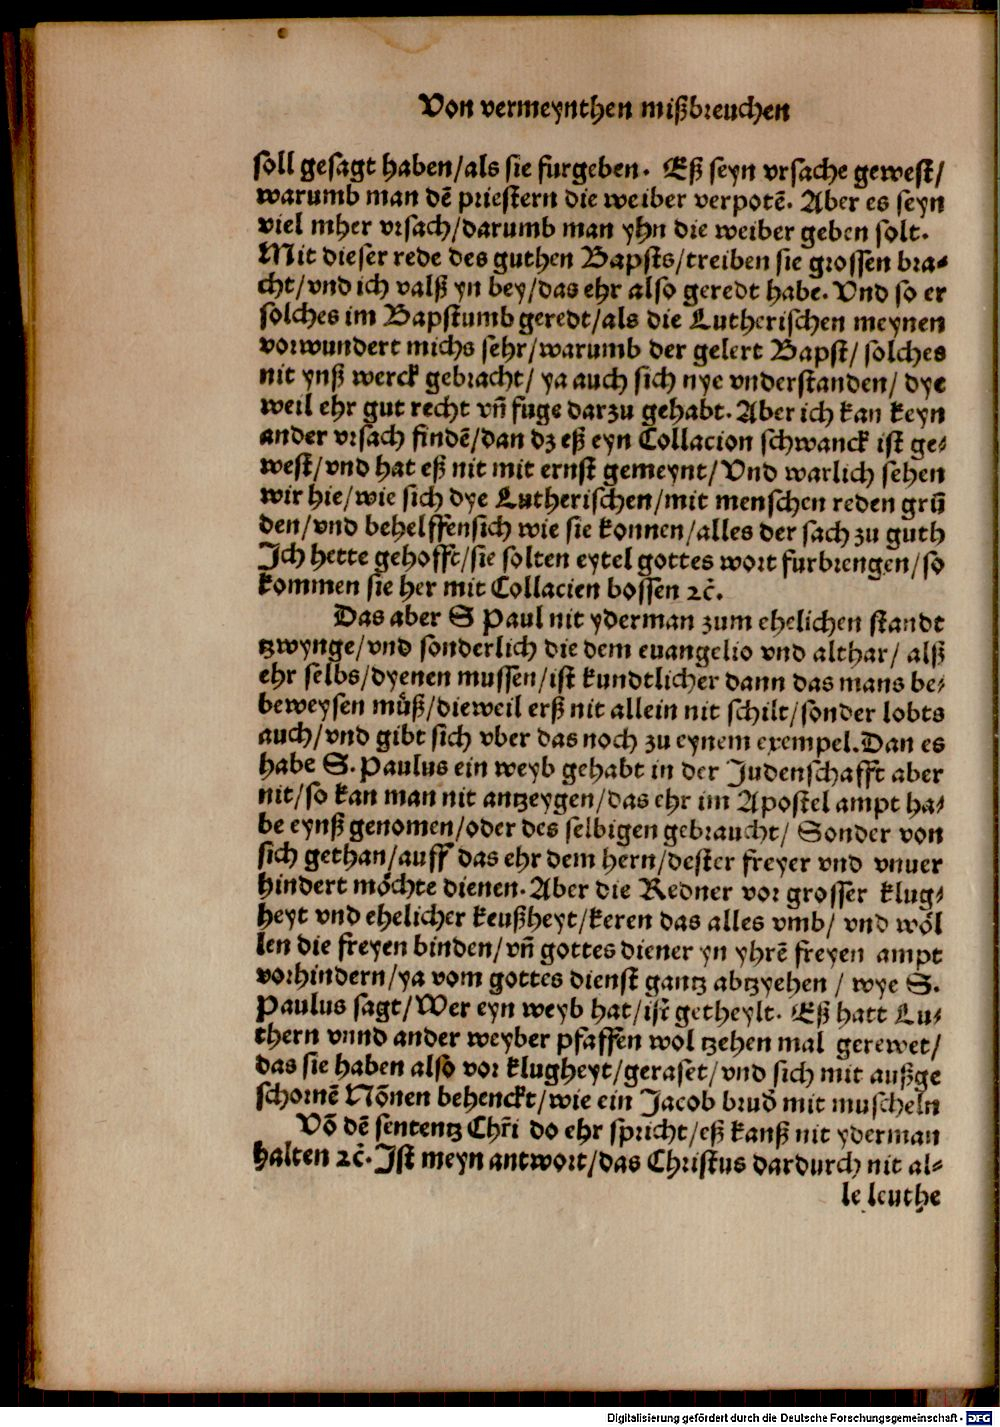 Von vermeynthen mißbreuchen
soll gesagt haben/als sie furgeben. Eß seyn vrsache gewest/
warumb man dē priestern die weiber verpotē. Aber es seyn
viel mher vrsach/darumb man yhn die weiber geben solt.
Mit dieser rede des guthen Bapsts/treiben sie grossen bra-
cht/vnd ich valß yn bey/das ehr also geredt habe. Vnd so er
solches im Bapstumb geredt/als die Lutherischen meynen
vorwundert michs sehr/warumb der gelert Bapst/ solches
nit ynß werck gebracht/ ya auch sich nye vnderstanden/ dye
weil ehr gut recht vñ fuge darzu gehabt. Aber ich kan keyn
ander vrsach findē/dan dz eß eyn Collacion schwanck ist ge-
west/vnd hat eß nit mit ernst gemeynt/Vnd warlich sehen
wir hie/wie sich dye Lutherischen/mit menschen reden grū
den/vnd behelffensich wie sie konnen/alles der sach zu guth
Ich hette gehofft/sie solten eytel gottes wort furbrengen/so
kommen sie her mit Collacien bossen ⁊c̄.
Das aber S Paul nit yderman zum ehelichen standt
tzwynge/vnd sonderlich die dem euangelio vnd althar/ alß
ehr selbs/dyenen mussen/ist kundtlicher dann das mans be-
beweysen muͤß/dieweil erß nit allein nit schilt/sonder lobts
auch/vnd gibt sich vber das noch zu eynem exempel. Dan es
habe S. Paulus ein weyb gehabt in der Judenschafft aber
nit/so kan man nit antzeygen/das ehr im Apostel ampt ha-
be eynß genomen/oder des selbigen gebraucht/ Sonder von
sich gethan/auff das ehr dem hern/dester freyer vnd vnuer
hindert moͤchte dienen. Aber die Redner vor grosser klug-
heyt vnd ehelicher keußheyt/keren das alles vmb/ vnd woͤl
len die freyen binden/vñ gottes diener yn yhrē freyen ampt
vorhindern/ya vom gottes dienst gantz abtzyehen / wye S.
Paulus sagt/Wer eyn weyb hat/ist getheylt. Eß hatt Lu-
thern vnnd ander weyber pfaffen wol tzehen mal gerewet/
das sie haben also vor klugheyt/geraset/vnd sich mit außge
schornē Nōnen behenckt/wie ein Jacob brud̄ mit muscheln
Vō dē sententz Chr̄i do ehr spricht/eß kanß nit yderman
halten ⁊c̄. Ist meyn antwort/das Christus dardurch nit al-
le leuthe
Digitalisierung gefördert durch die Deutsche Forschungsgemeinschaft - DFG